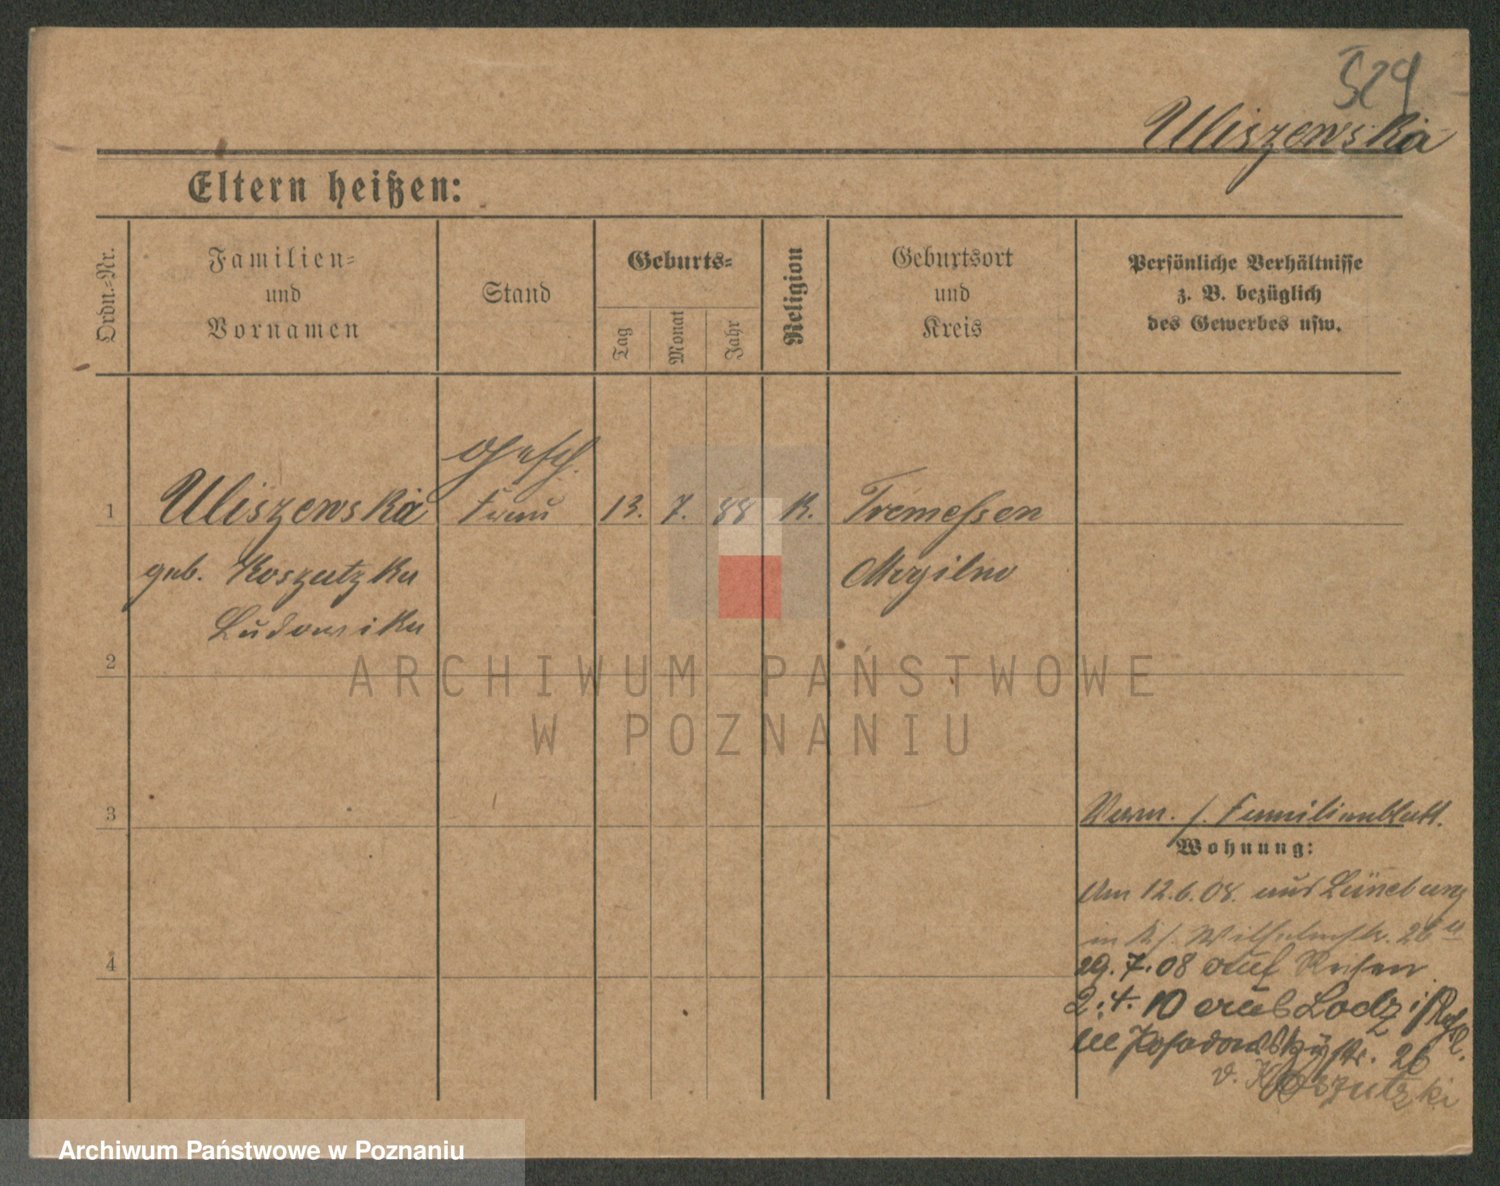 529
Uliszewska
Eltern heißen:
Ordn.=Nr.
Familien=
und
Vornamen
Stand
Geburts=
Tag
Monat
Jahr
Religion
Geburtsort
und
Kreis
Persönliche Verhältnisse
z. B. bezüglich
des Gewerbes usw.
gesch.
1 Uliszewska Frau 13. 7. 88 K. Tremessen
geb. Koszutzka Mogilno
Ludowika
2
ARCHIWUM PAŃSTWOWE
W POZNANIU
3
Verm. s. Familienblatt.
Wohnung:
Am 12.6.08. aus Lüneburg
in Wilhelmstr. 26
29.7.08 auf Reisen
4
2.4.10 aus Lodz i/
Posadowskystr. 26
v. Koszutzki
Archiwum Państwowe w Poznaniu